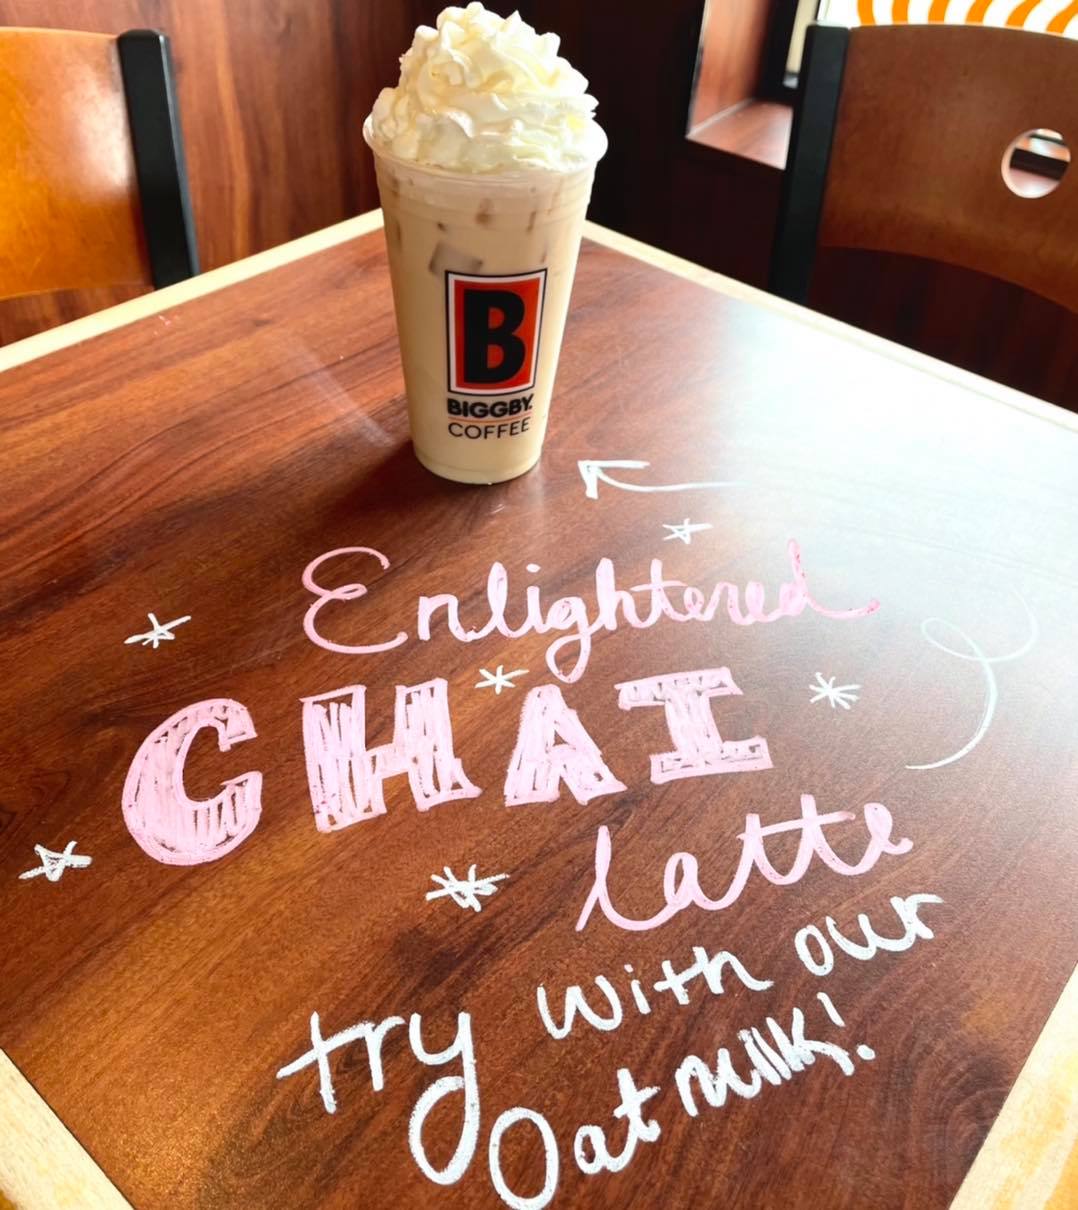 B
BIGGBY.
COFFEE
Enlightered
CHAI
latte
try with our
Oat milk!